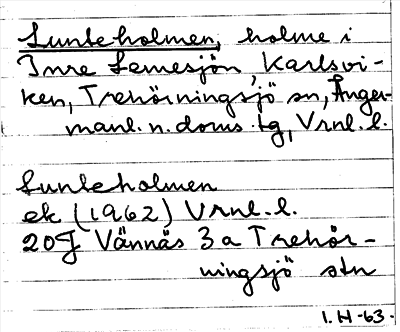 Sunteholmen, holme i
Inre Lemesjön, Karlsvi-
ken, Trehörningsjö sn, Ånger-
manl. n. doms. tg, Vrnl. l.
Sunteholmen
ek (1962) Vrnl. l.
20J Vännäs 3a Trehör-
ningsjö stn
I.H-63.